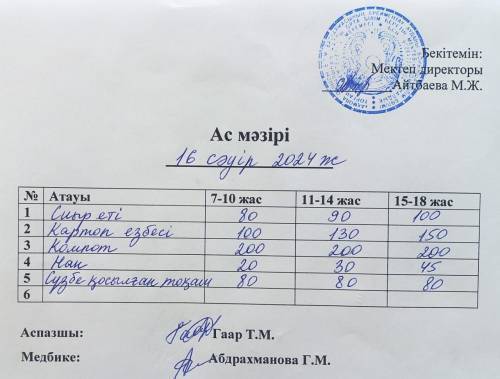 Бекітемін:
Мектеп директоры
Айтбаева М.Ж.
Ас мәзірі
16 сәуір 2024 ж
№ Атауы 7-10 жас 11-14 жас 15-18 жас
1 Сиыр еті 80 90 100
2 Картоп езбесі 100 130 150
3 Компот 200 200 200
4 Нан 20 30 45
5 Сүзбе қосылған тоқаш 80 80 80
6
Аспазшы: Гаар Т.М.
Медбике: Абдрахманова Г.М.